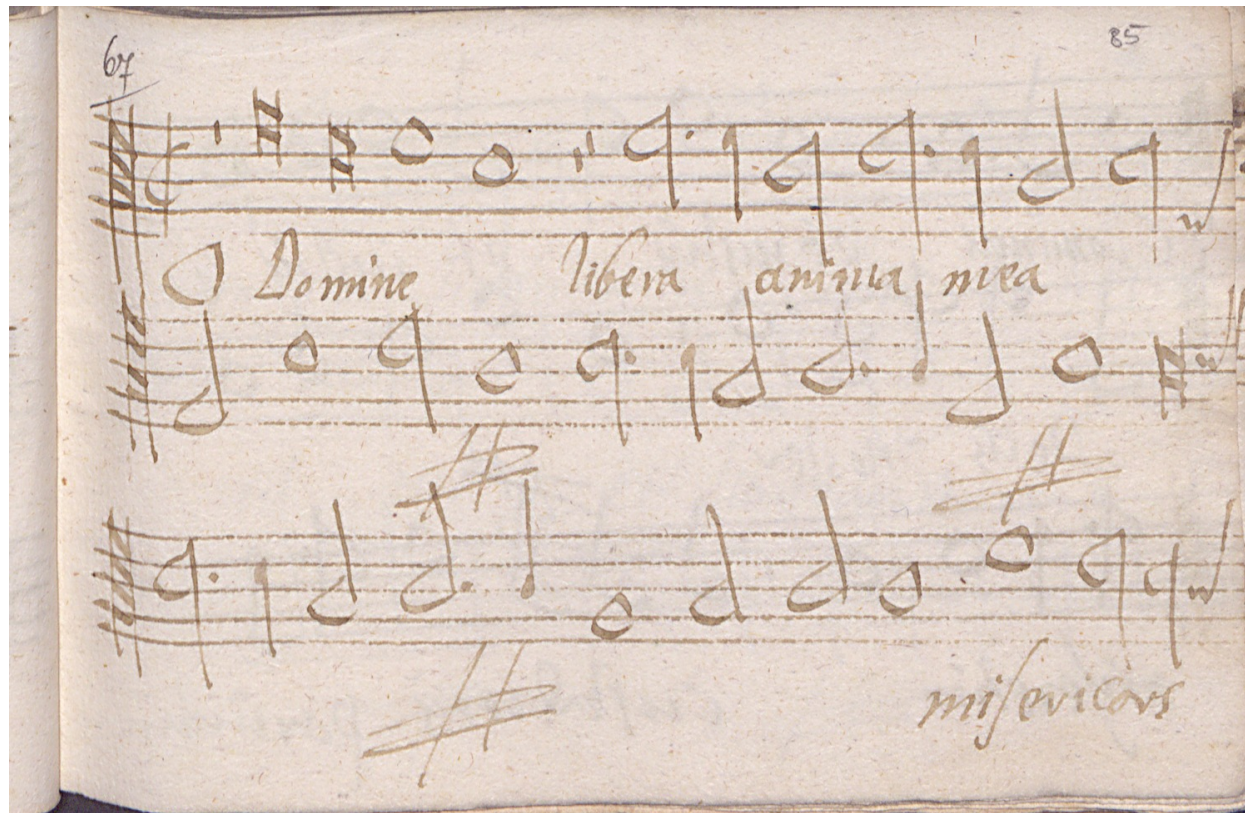 67 85
O Domine libera anima mea
misericors